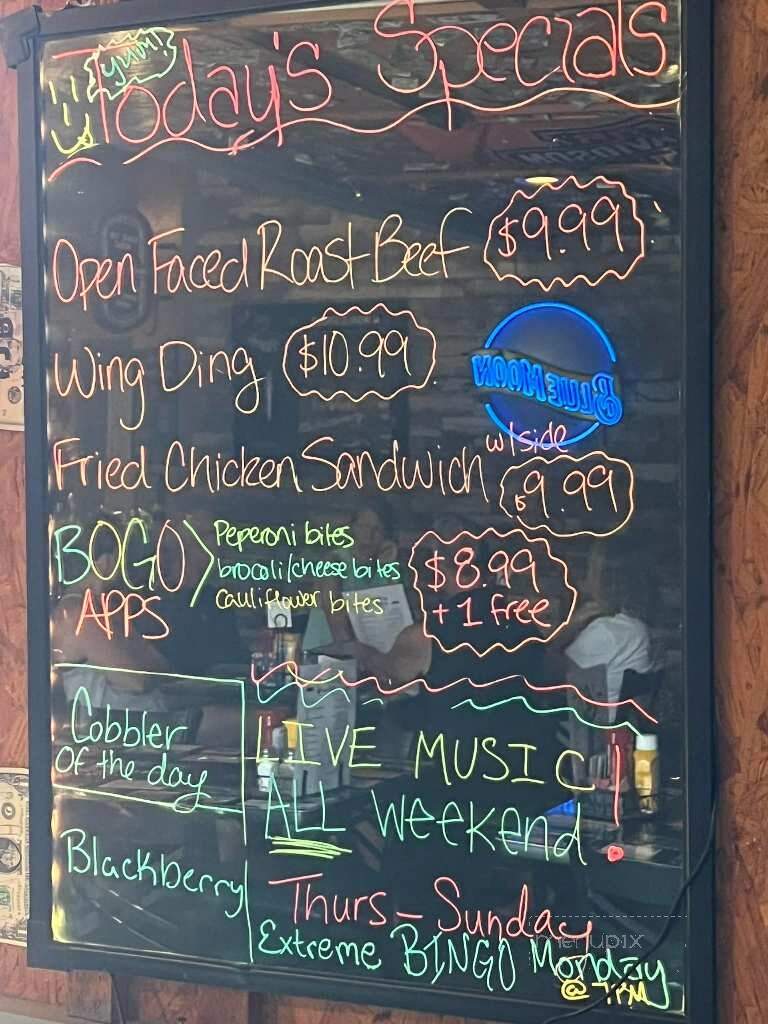 yum!
Today's Specials
Open Faced Roast Beef $9.99
Wing Ding $10.99
BLUE MOON
Fried Chicken Sandwich w/side $9.99
BOGO APPS
Peperoni bites
brocoli/cheese bites
cauliflower bites
$8.99
+ 1 free
Cobbler
of the day
Blackberry
LIVE MUSIC!
ALL weekend
Thurs - Sunday
Extreme BINGO Monday
@ 7PM
menupix